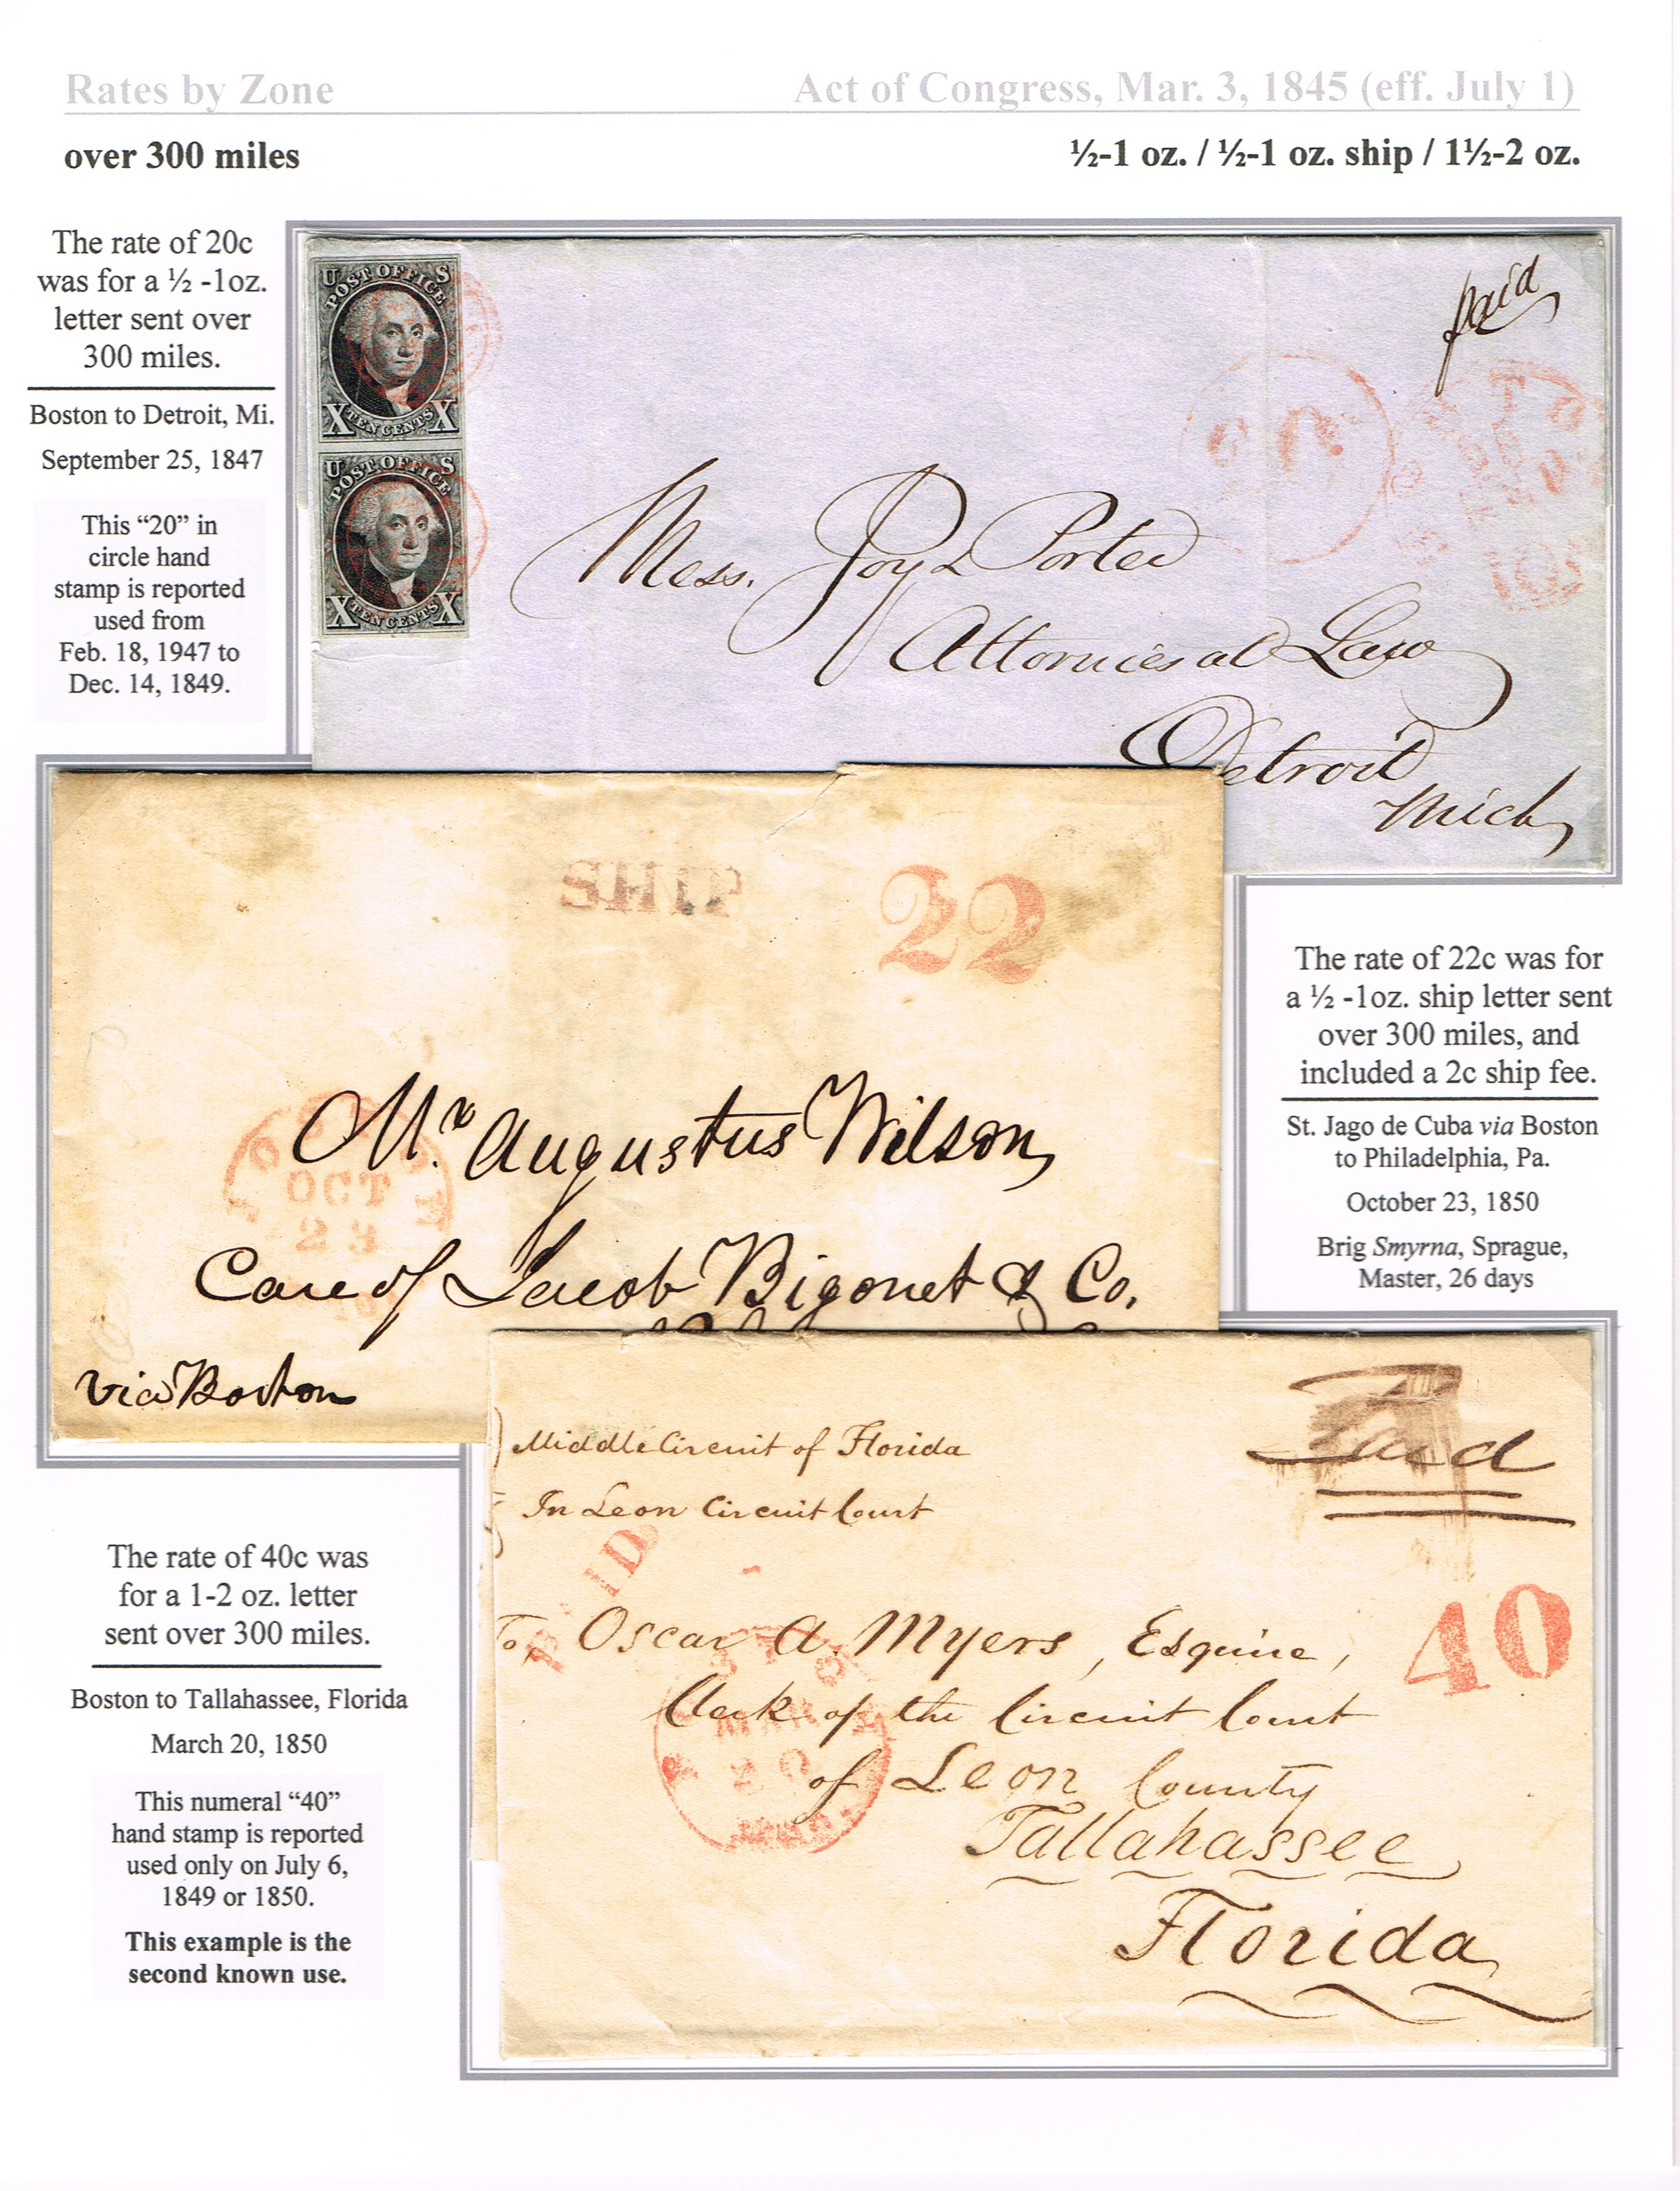 Rates by Zone
Act of Congress, Mar. 3, 1845 (eff. July 1)
over 300 miles
½-1 oz. / ½-1 oz. ship / 1½-2 oz.
The rate of 20c
was for a ½ -1oz.
letter sent over
300 miles.
Boston to Detroit, Mi.
September 25, 1847
This “20” in
circle hand
stamp is reported
used from
Feb. 18, 1947 to
Dec. 14, 1849.
U S
POST OFFICE
X TEN CENTS X
U S
POST OFFICE
X TEN CENTS X
paid
20
Mess. Joy & Porter
Attornies at Law
Detroit
Mich
SHIP
22
OCT
23
Mr. Augustus Wilson
Care of Jacob Bigonet & Co.
via Boston
The rate of 22c was for
a ½ -1oz. ship letter sent
over 300 miles, and
included a 2c ship fee.
St. Jago de Cuba via Boston
to Philadelphia, Pa.
October 23, 1850
Brig Smyrna, Sprague,
Master, 26 days
The rate of 40c was
for a 1-2 oz. letter
sent over 300 miles.
Boston to Tallahassee, Florida
March 20, 1850
This numeral “40”
hand stamp is reported
used only on July 6,
1849 or 1850.
This example is the
second known use.
Middle Circuit of Florida
In Leon Circuit Court
Paid
PAID
40
MAR
20
To, Oscar A. Myers, Esquire,
Clerk of the Circuit Court
of Leon County
Tallahassee
Florida